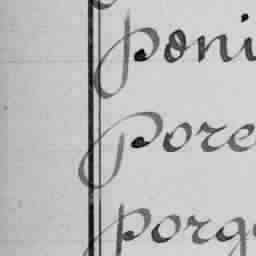 poni
pore
porg